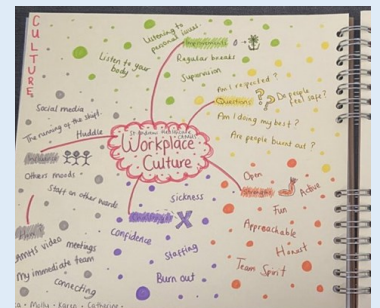 CULTURE
Listening to
personal issues.
Listen to your
body
Improvements
Regular breaks
Supervision
Am I respected?
Questions
Do people
feel safe?
Am I doing my best?
Are people burnt out?
Social media
The running of the shift.
Huddle
Others moods
Staff on other wards
St Andrews Healthcare
Workplace
Culture
Open
Active
Fun
Approachable
Honest
Team Spirit
Sickness
Confidence
Staffing
Burn out
video meetings
My immediate team
connecting
Molly • Karen • Catherine •